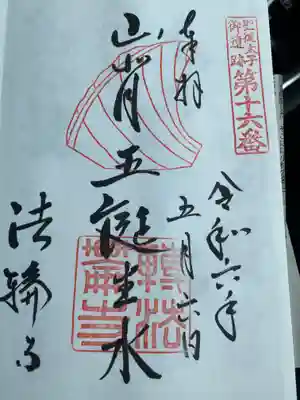 聖徳太子
御遺跡
第十六番
奉拝
令和六年
五月六日
山背王誕生水
法輪寺